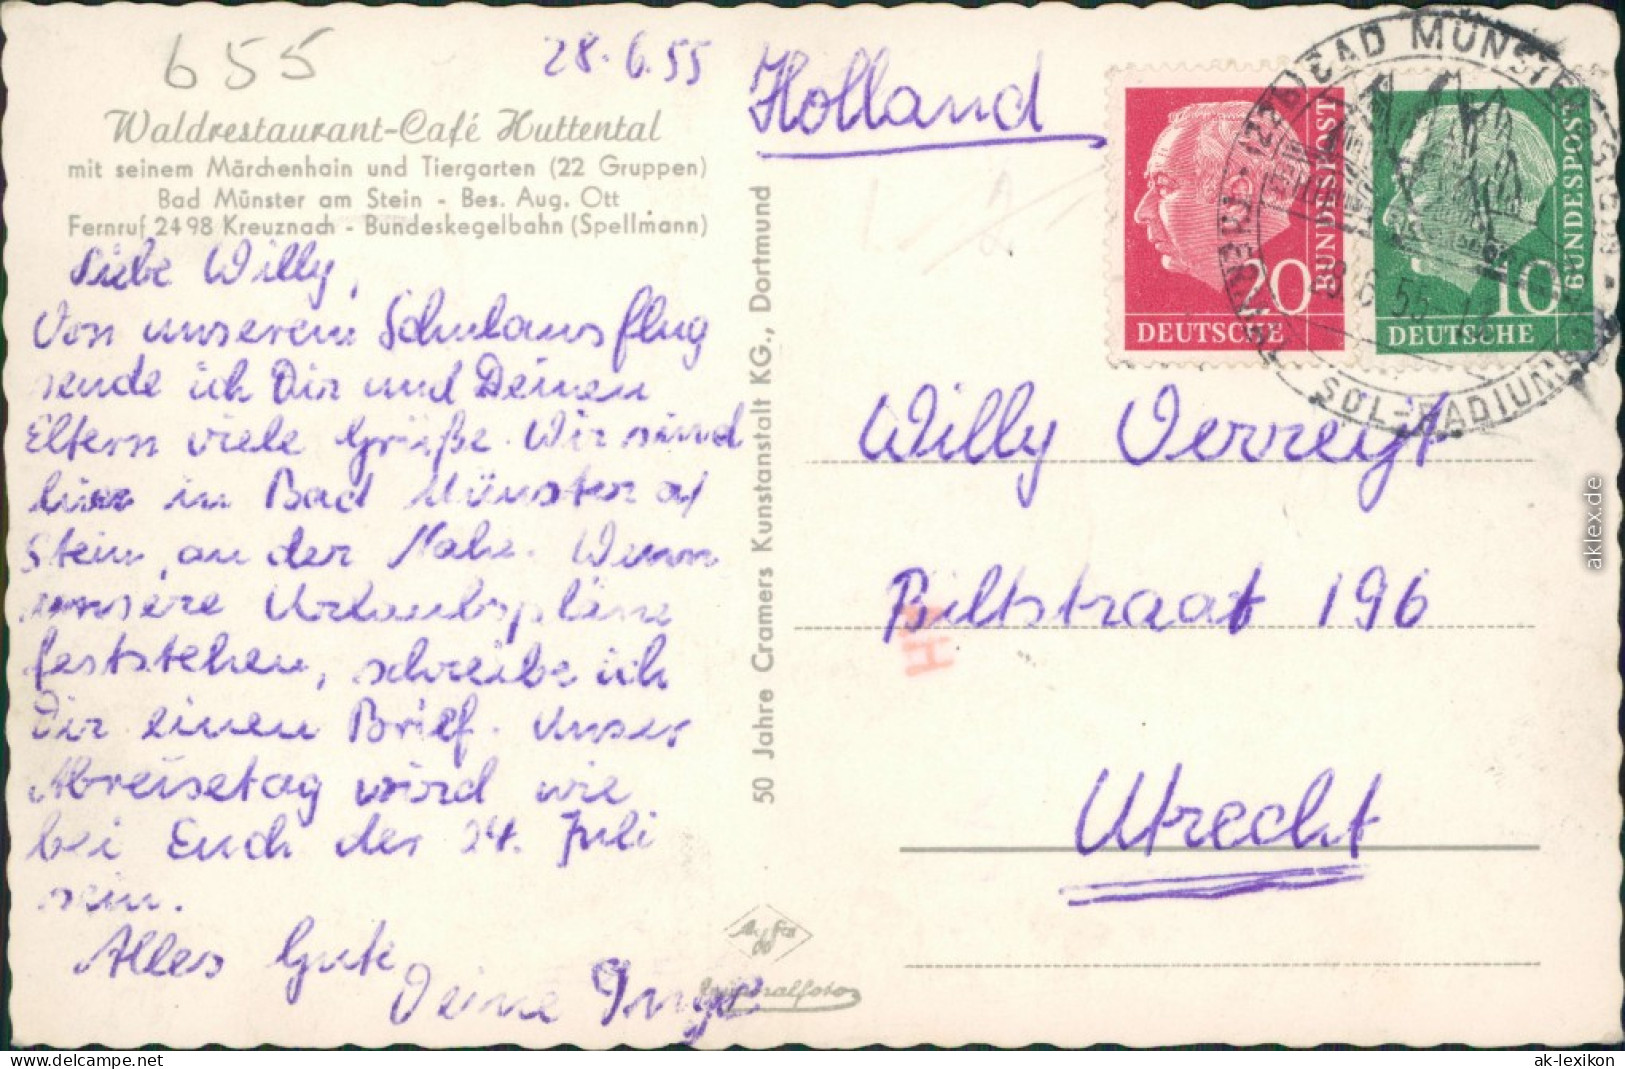 655
28.6.55
Waldrestaurant-Café Huttental
mit seinem Märchenhain und Tiergarten (22 Gruppen)
Bad Münster am Stein - Bes. Aug. Ott
Fernruf 2498 Kreuznach - Bundeskegelbahn (Spellmann)
Liebe Willy,
Von unserem Schulausflug
sende ich Dir und Deinen
Eltern viele Grüße. Wir sind
hier in Bad Münster a/
Stein, an der Nahe. Wenn
unsere Urlaubspläne
feststehen, schreibe ich
Dir einen Brief. Unser
Abreisetag wird wie
bei Euch der 24. Juli
sein.
Alles Gute
Deine Inge
50 Jahre Cramers Kunstanstalt KG., Dortmund
Agfa
Originalfoto
Holland
DEUTSCHE
BUNDESPOST
20
DEUTSCHE
BUNDESPOST
10
(22b) BAD MÜNSTER
28.6.55
SOL-RADIUM
Willy Verreyt
Biltstraat 196
Utrecht
aklex.de
ak-ansichtskarten.de
ak-lexikon